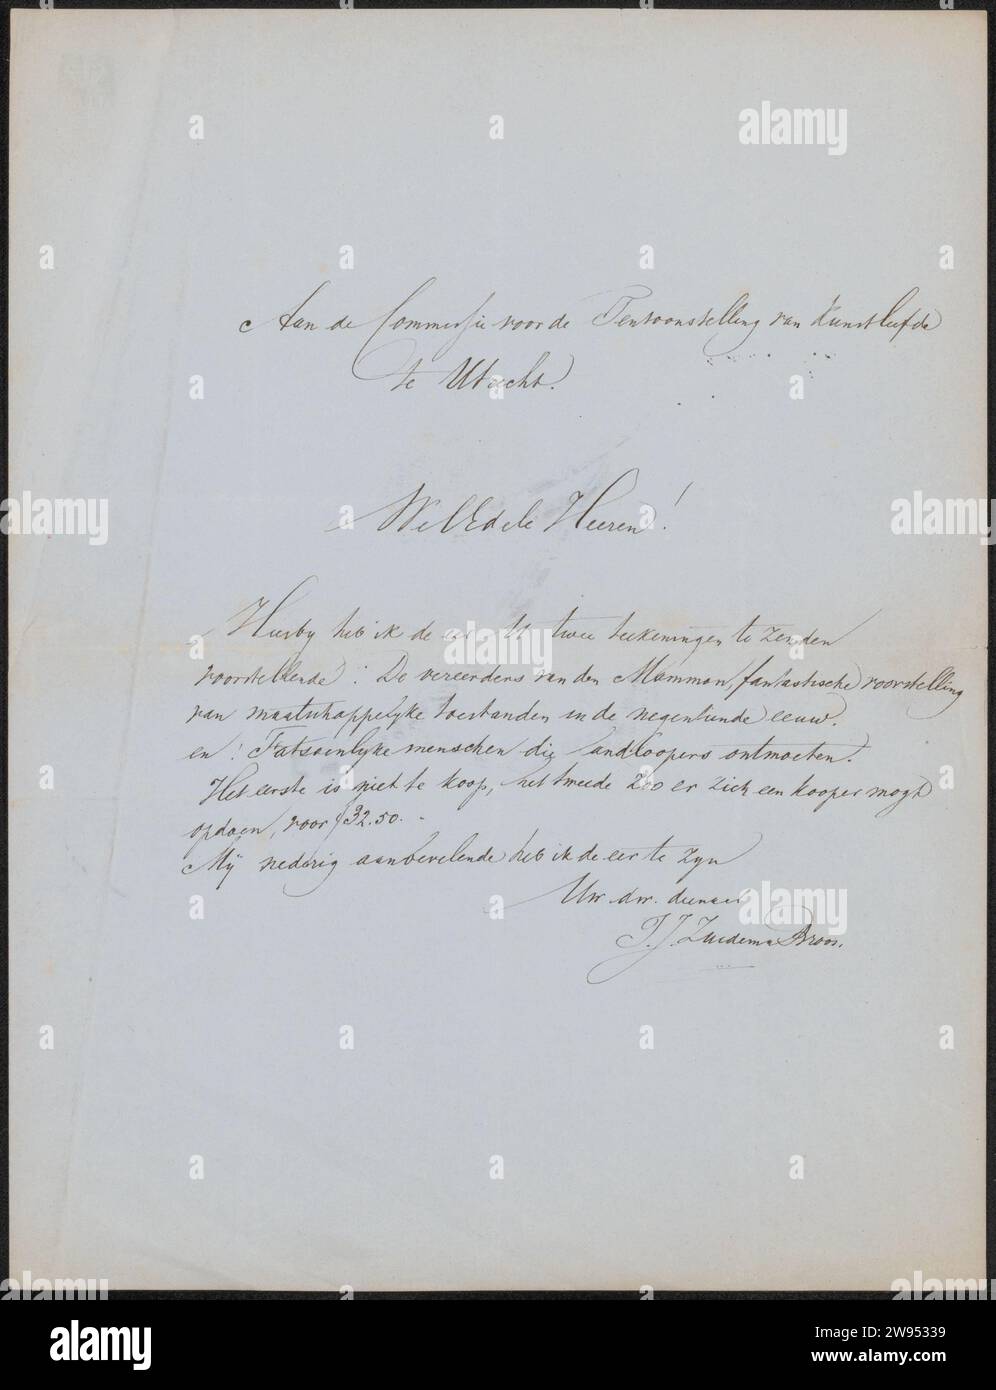 Aan de Commissie voor de Tentoonstelling van Kunstliefde
te Utrecht.
WelEdele Heeren!
Hierby heb ik de eer U twee teekeningen te zenden
voorstellende: De vereerders van den Mammon, fantastische voorstelling
van maatschappelyke toestanden in de negentiende eeuw.
en: Fatsoenlyke menschen die landloopers ontmoeten.
Het eerste is niet te koop, het tweede zoo er zich een kooper mogt
opdoen, voor ƒ32.50.-
Mij nederig aanbevelende heb ik de eer te zyn
Uw dw. dienaar
T. J. Zuidema Broos.
alamy
alamy
alamy
alamy
alamy
Image ID: 2W95339
www.alamy.com